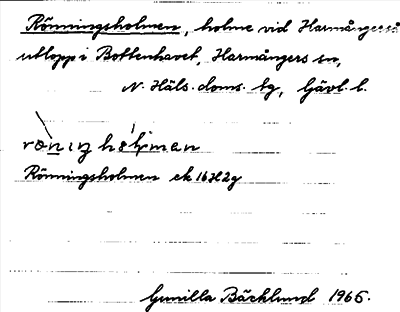 Rönningsholmen, holme vid Harmångerså
utlopp i Bottenhavet, Harmångers sn,
N. Häls. doms. tg, Gävl. l.
Rönningsholmen ek 16H2g
Gunilla Bäcklund 1966.